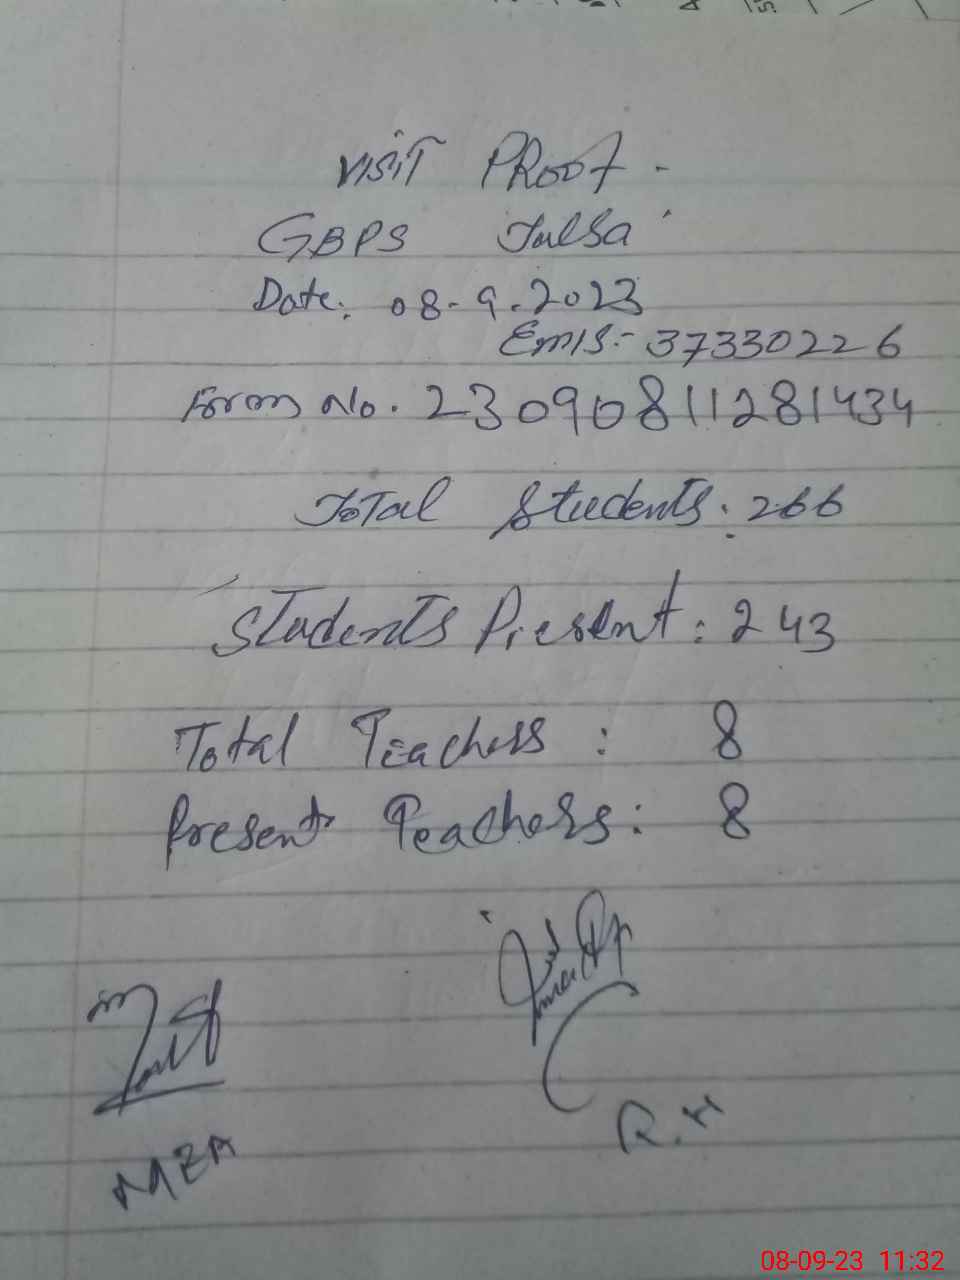 VISIT PROOF -
GBPS Julsa
Date: 08-9.2023
EMIS:- 37330226
Form No. 23090811281434
Total Students: 266
Students Present: 243
Total Teachers : 8
Present Teachers: 8
MEA
R.H
08-09-23 11:32